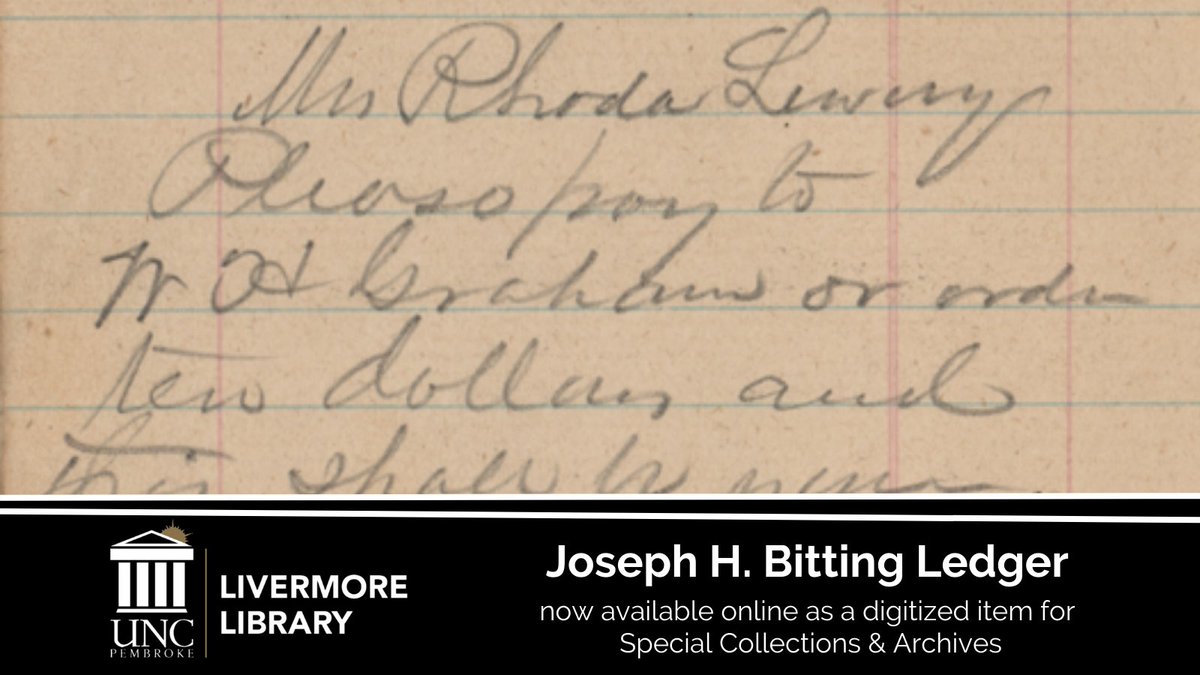 Mrs Rhoda Lowery
Please pay to
W H Graham or order
ten dollars and
this shall be your
UNC
PEMBROKE
LIVERMORE
LIBRARY
Joseph H. Bitting Ledger
now available online as a digitized item for
Special Collections & Archives